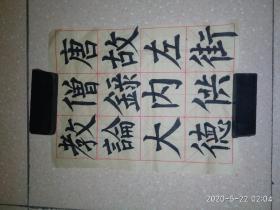 唐故左街
僧録内供
教論大德
2020-5-22 02:04